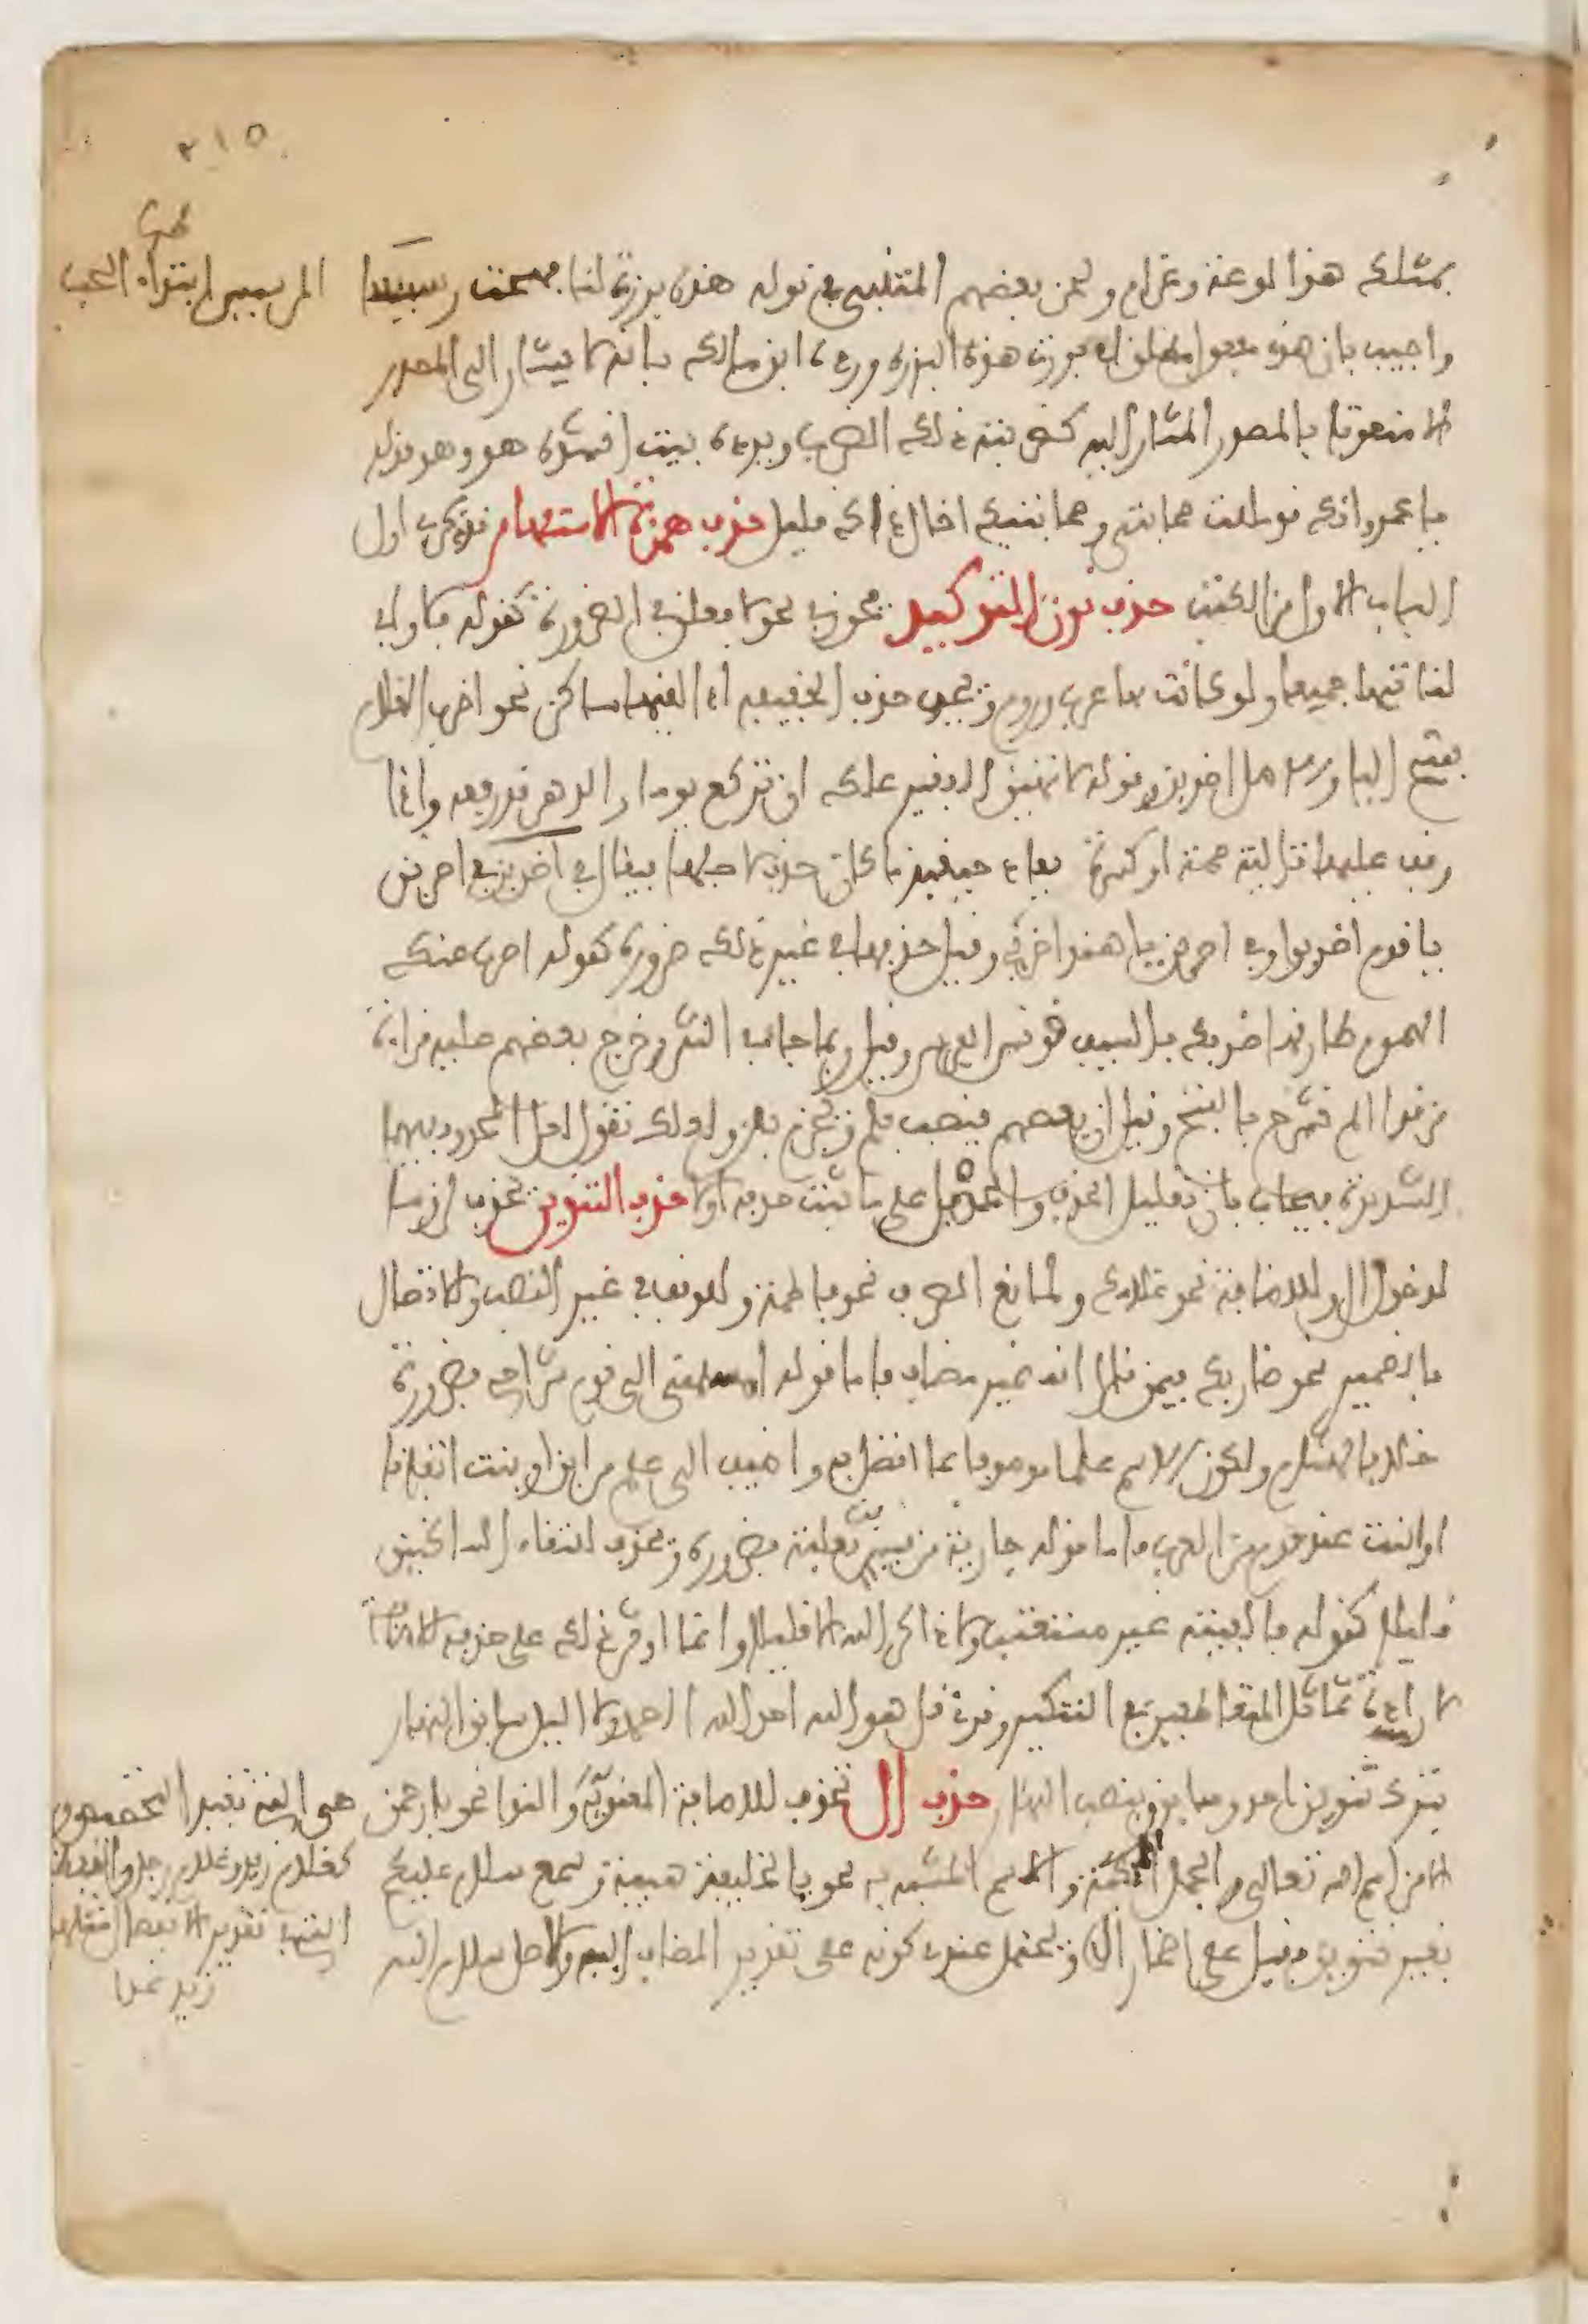 ٢١٥
بمثلك هذا لوعة وغرام ولحن بعضهم المتنبي في قوله هذي برزت لنا فهجت رسيسا
واجيب بان هذي مفعول مطلق اي برزت هذه البرزة ورده ابن مالك بانه لا يشار الى المصدر
الا منعوتا بالمصدر المشار اليه كضربته ذلك الضرب ويرده بيت انشده هو وهو قوله
يا عمرو انك قد مللت صحابتي وصحابتيك اخال ذاك قليل حذف همزة الاستفهام قد ذكر في اول
الباب الاول من الكتاب حذف نون التوكيد يجوز في نحو لافعلن في الضرورة كقوله فلا وابي
لناتيها جميعا ولو كانت بها عرب وروم ويجب حذف الخفيفة اذا لقيها ساكن نحو اضرب الغلام
بفتح الباء والاصل اضربن وقوله لا تهين الفقير علك ان تركع يوما والدهر قد رفعه واذا
وقف عليها تالية ضمة او كسرة ويعاد حينئذ ما كان حذف لاجلها فيقال في اضربن
يا قوم اضربوا وفي اضربن يا هند اضربي وقيل حذفها في غير ذلك ضرورة كقوله اضرب عنك
الهموم طارقها ضربك بالسيف قونس الفرس وقيل ربما جاء في النثر وخرج بعضهم عليه قراءة
من قرا الم نشرح بالفتح وقيل ان بعضهم ينصب بلم ويجزم بلن ولك ان تقول لعل المحذوف فيهما
الشديدة فيجاب بان تقليل الحذف والحمل على ما ثبت حذفه اولى حذف التنوين يحذف لزوما
لدخول ال وللاضافة نحو غلامك ولمانع الصرف نحو فاطمة وللوقف في غير النصب وللاتصال
بالضمير نحو ضاربك فيمن قال انه غير مضاف فاما قوله امسلمني الى قومي شراحي فضرورة
خلافا لهشام ولكون الاسم علما موصوفا بما اتصل به واضيف الى علم من ابن او ابنة اتفاقا
او بنت عند قوم من العرب فاما قوله جارية من قيس بن ثعلبة فضرورة ويحذف لالتقاء الساكنين
قليلا كقوله فالفيته غير مستعتب ولا ذاكر الله الا قليلا وانما اوثر ذلك على حذفه للاضافة
لارادة تماثل المتعاطفين في التنكير وقرئ قل هو الله احد الله الصمد ولا الليل سابق النهار
بترك تنوين احد وسابق وبنصب النهار حذف ال تحذف للاضافة المعنوية وللنداء نحو يا رحمن
الا من اسم الله تعالى والجمل المحكية والاسم المشبه به نحو يا الخليفة هيبة وسمع سلام عليكم
بغير تنوين فقيل على اضمار ال ويحتمل عندي كونه على تقدير المضاف اليه والاصل سلام الله
الرسيس ابتداء الحب
هي التي تفيد التخصيص
كغلام زيد وغلام رجل
زيد غدا